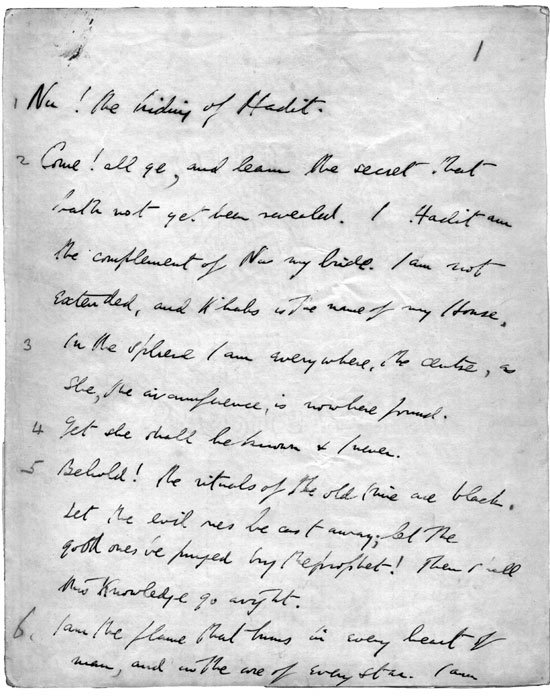 1
1 Nu! the hiding of Hadit.
2 Come! all ye, and learn the secret that
hath not yet been revealed. I Hadit am
the complement of Nu my bride. I am not
extended, and Khabs is the name of my House.
3 In the sphere I am everywhere, the centre, as
she, the circumference, is nowhere found.
4 Yet she shall be known & I never.
5 Behold! the rituals of the old time are black.
Let the evil ones be cast away; let the
good ones be purged by the prophet! Then shall
this Knowledge go aright.
6. I am the flame that burns in every heart of
man, and in the core of every star. I am